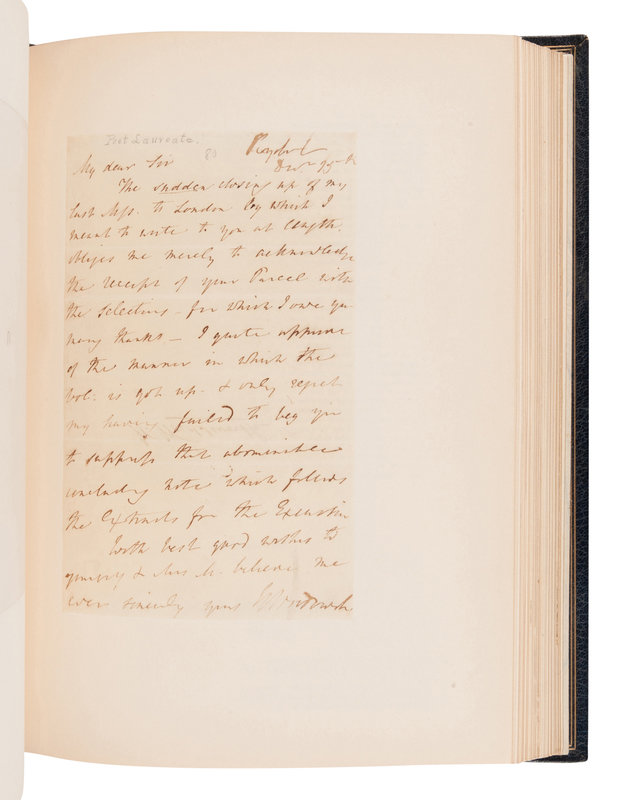 Poet Laureate.
80
Rydal
My dear Sir
The sudden closing up of my
last Mss. to London by which I
meant to write to you at length,
obliges me merely to acknowledge
the receipt of your Parcel with
the Selections - for which I owe you
many thanks - I quite approve
of the manner in which the
vol: is got up - & only regret
my having failed to beg you
to suppress that abominable
concluding note which follows
the Extracts from the Excursion
With best good wishes to
yourself & Mrs M. believe me
ever sincerely yours Wm Wordsworth